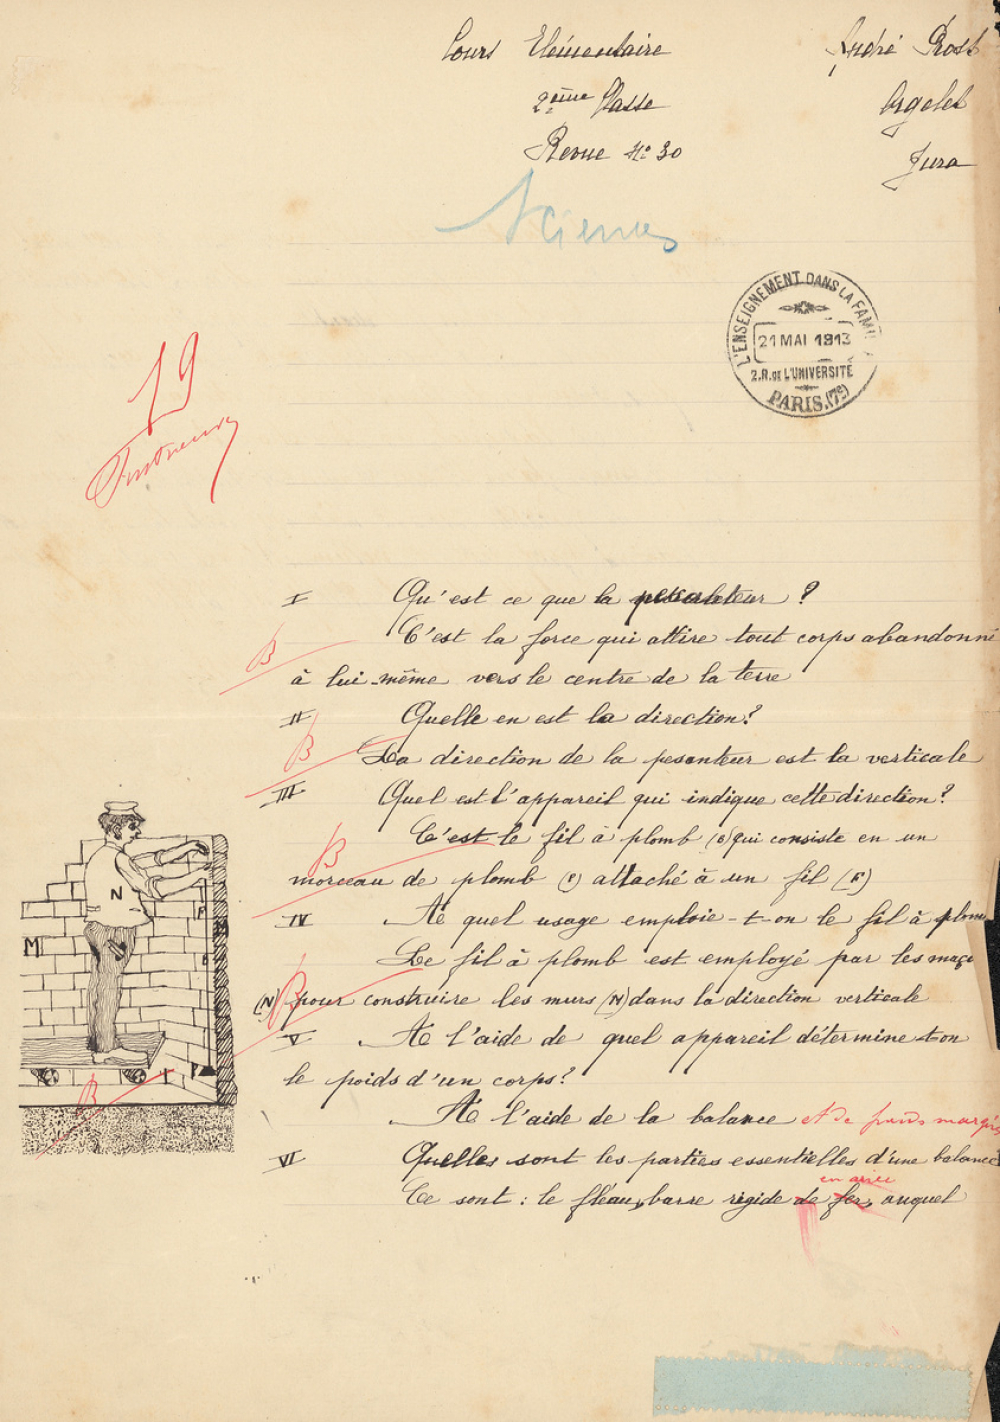 Cours Elémentaire
André Prost
2ème Classe
Orgelet
Revue No 30
Jura
Sciences
L'ENSEIGNEMENT DANS LA FAMI
21 MAI 1913
2.R. DE L'UNIVERSITÉ
PARIS.(7e)
19
I Qu'est ce que la pesanteur ?
B
C'est la force qui attire tout corps abandonné
à lui-même vers le centre de la terre
II Quelle en est la direction?
B
La direction de la pesanteur est la verticale
III Quel est l'appareil qui indique cette direction?
B
C'est le fil à plomb (B) qui consiste en un
morceau de plomb (P) attaché à un fil (F)
IV A quel usage emploie-t-on le fil à plom
B
Le fil à plomb est employé par les maço
(N) pour construire les murs (M) dans la direction verticale
V A l'aide de quel appareil détermine t-on
le poids d'un corps?
B
A l'aide de la balance et de poids marqués
VI Quelles sont les parties essentielles d'une balance
en acier
Ce sont : le fléau, barre rigide de fer, auquel
N
M
F
P